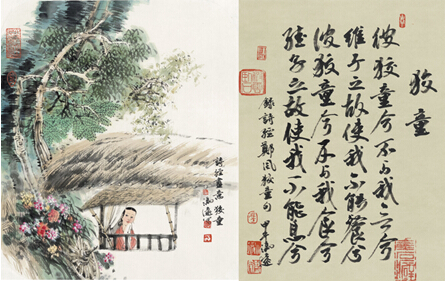 詩經畫意狡童
狡童
彼狡童兮不与我言兮
維子之故使我不能餐兮
彼狡童兮不与我食兮
維子之故使我不能息兮
錄詩經鄭風狡童句